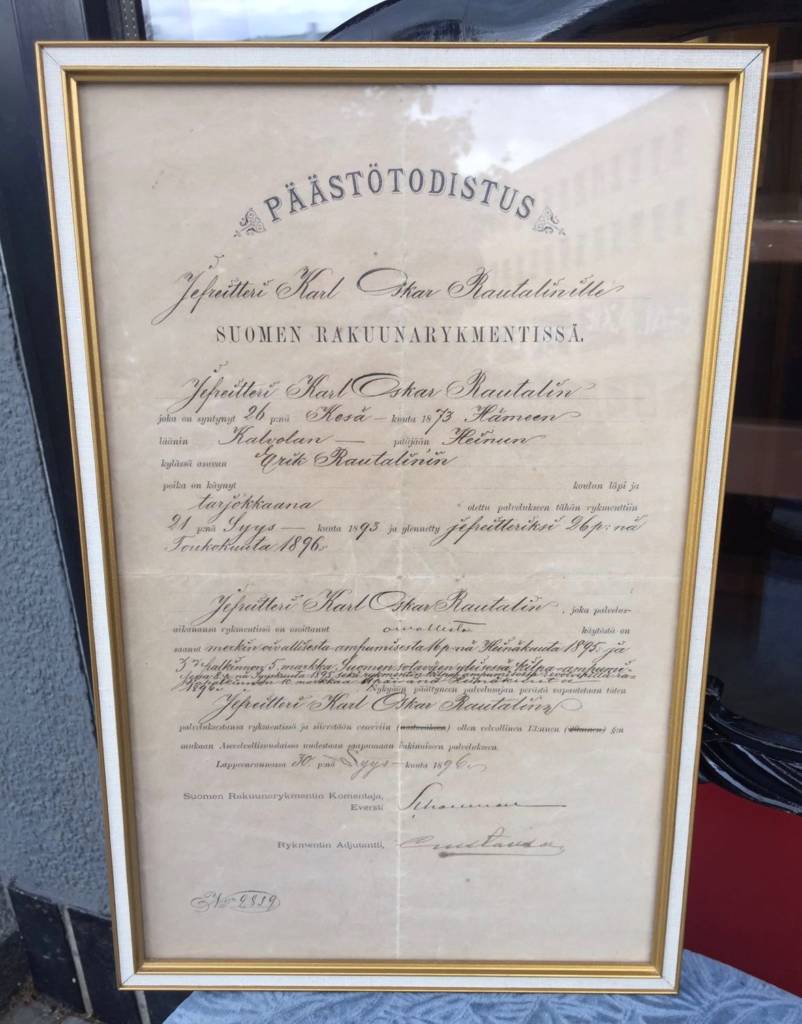 PÄÄSTÖTODISTUS
Jefreitteri Karl Oskar Rautalinille
SUOMEN RAKUUNARYKMENTISSÄ.
Jefreitteri Karl Oskar Rautalin
joka on syntynyt 26 p:nä Kesä – kuuta 1873 Hämeen
läänin Kalvolan – pitäjään Heinun
kylässä asuvan Erik Rautalinin
poika on käynyt koulun läpi ja
tarjokkaana otettu palvelukseen tähän rykmenttiin
21 p:nä Syys – kuuta 1893 ja ylennetty jefreitteriksi 26 p:nä
Toukokuuta 1896.
Jefreitteri Karl Oskar Rautalin, joka palvelus-
aikanansa rykmentissä on osoittanut oivallista käytöstä on
saanut merkin oivallisesta ampumisesta 16 p:nä Heinäkuuta 1895 ja
3:s palkinnon 5 markkaa Suomen sotaväen yleisessä kilpa-ampumi-
sessa p:nä Syyskuuta 1895 sekä rykmentin
1896.
Nykyään päättyneen palvelusajan perästä vapautetaan täten
Jefreitteri Karl Oskar Rautalin
palveluksestansa rykmentissä ja siirretään reserviin (nostoväkeen) ollen velvollinen 13:nnen §:n
mukaan Asevelvollisuuslaissa uudestaan saapumaan vakinaiseen palvelukseen.
Lappeenrannassa 30 p:nä Syys – kuuta 1896.
Suomen Rakuunarykmentin Komentaja,
Eversti Schauman
Rykmentin Adjutantti,
No 2819